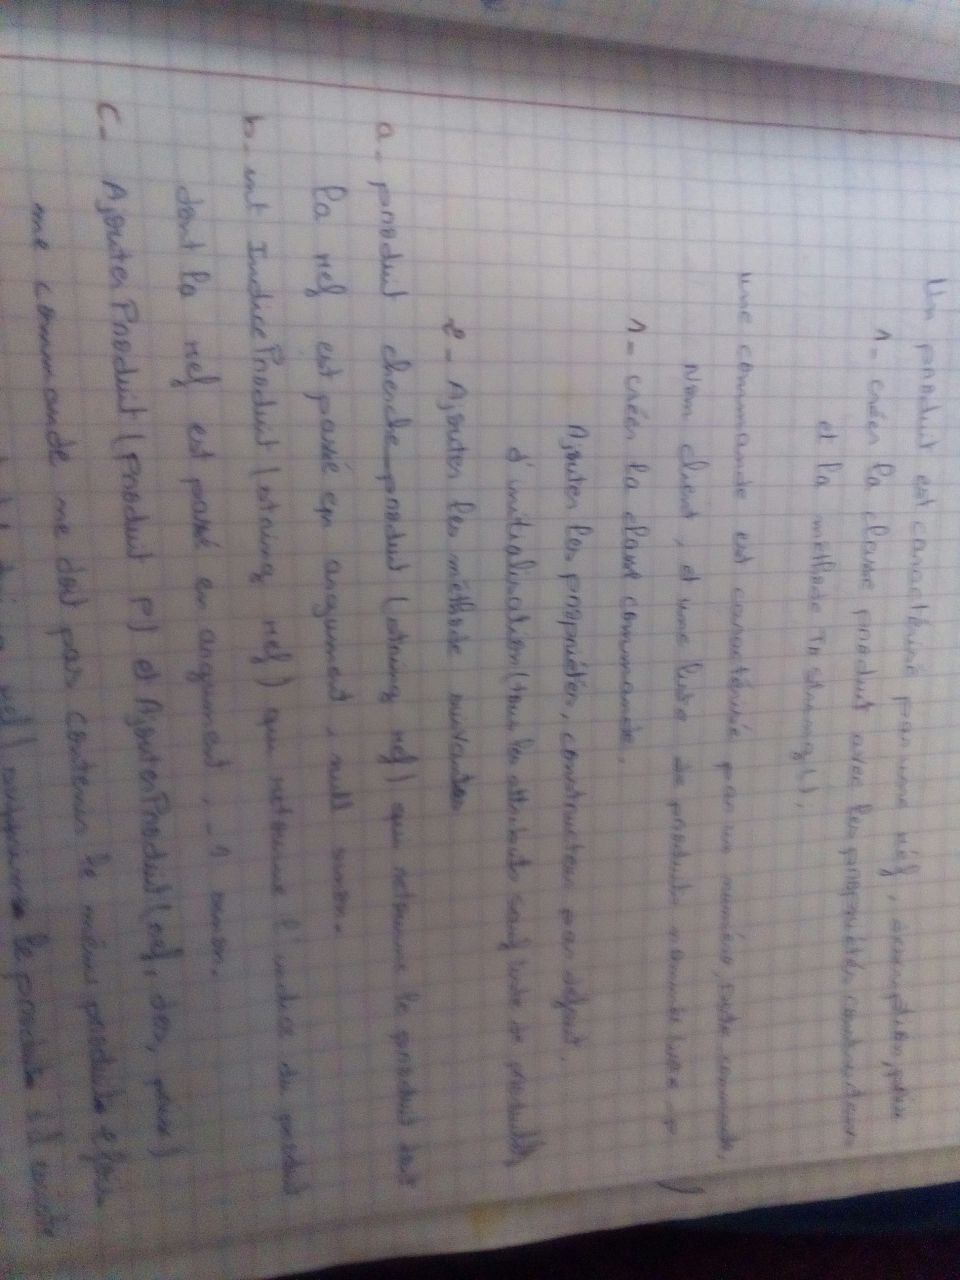 Un produit est caractérisé par une réf, description, prix
1- créer la classe produit avec les propriétés constructeur
et la méthode ToString().
une commande est caractérisé par un numéro, date commande,
Nom client, et une liste de produits nommée liste_p
1- créer la classe commande.
Ajouter les propriétés, constructeur par défaut,
d'initialisation (tous les attributs sauf liste de produits)
2- Ajouter les méthode suivantes
a- produit cherche_produit (string ref) qui retourne le produit dont
la ref est passé en argument, null sinon.
b- int IndiceProduit (string ref) qui retourne l'indice du produit
dont la ref est passé en argument, -1 sinon.
c- AjouterProduit (Produit P) et AjouterProduit (ref, des, prix)
une commande ne doit pas contenir le même produit 2 fois
ref) supprime le produit s'il existe